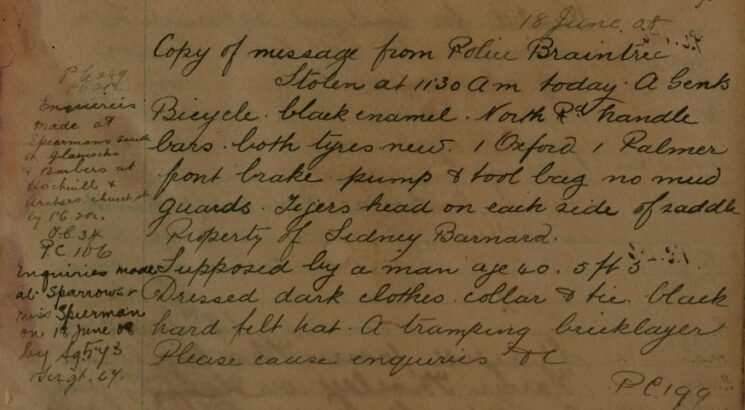 18 June 08
Copy of message from Police Braintree
Stolen at 11·30 Am today. A Gents
Bicycle. black enamel. North Rd handle
bars. both tyres new. 1 Oxford 1 Palmer
front brake pump & tool bag no mud
guards. Tigers head on each side of saddle
Property of Sidney Barnard.
Supposed by a man age 40. 5 ft 5
Dressed dark clothes. collar & tie. black
hard felt hat. A tramping bricklayer
Please cause enquiries &c
PC 199
PC 249.
Enqueries
made at
Spearmans south
st.
& Barbers at
&
church st
by PC 202.
PC 106
Enquiries made
at Sparrows &
Spierman
on 18 June 08
by
Sergt. 24.